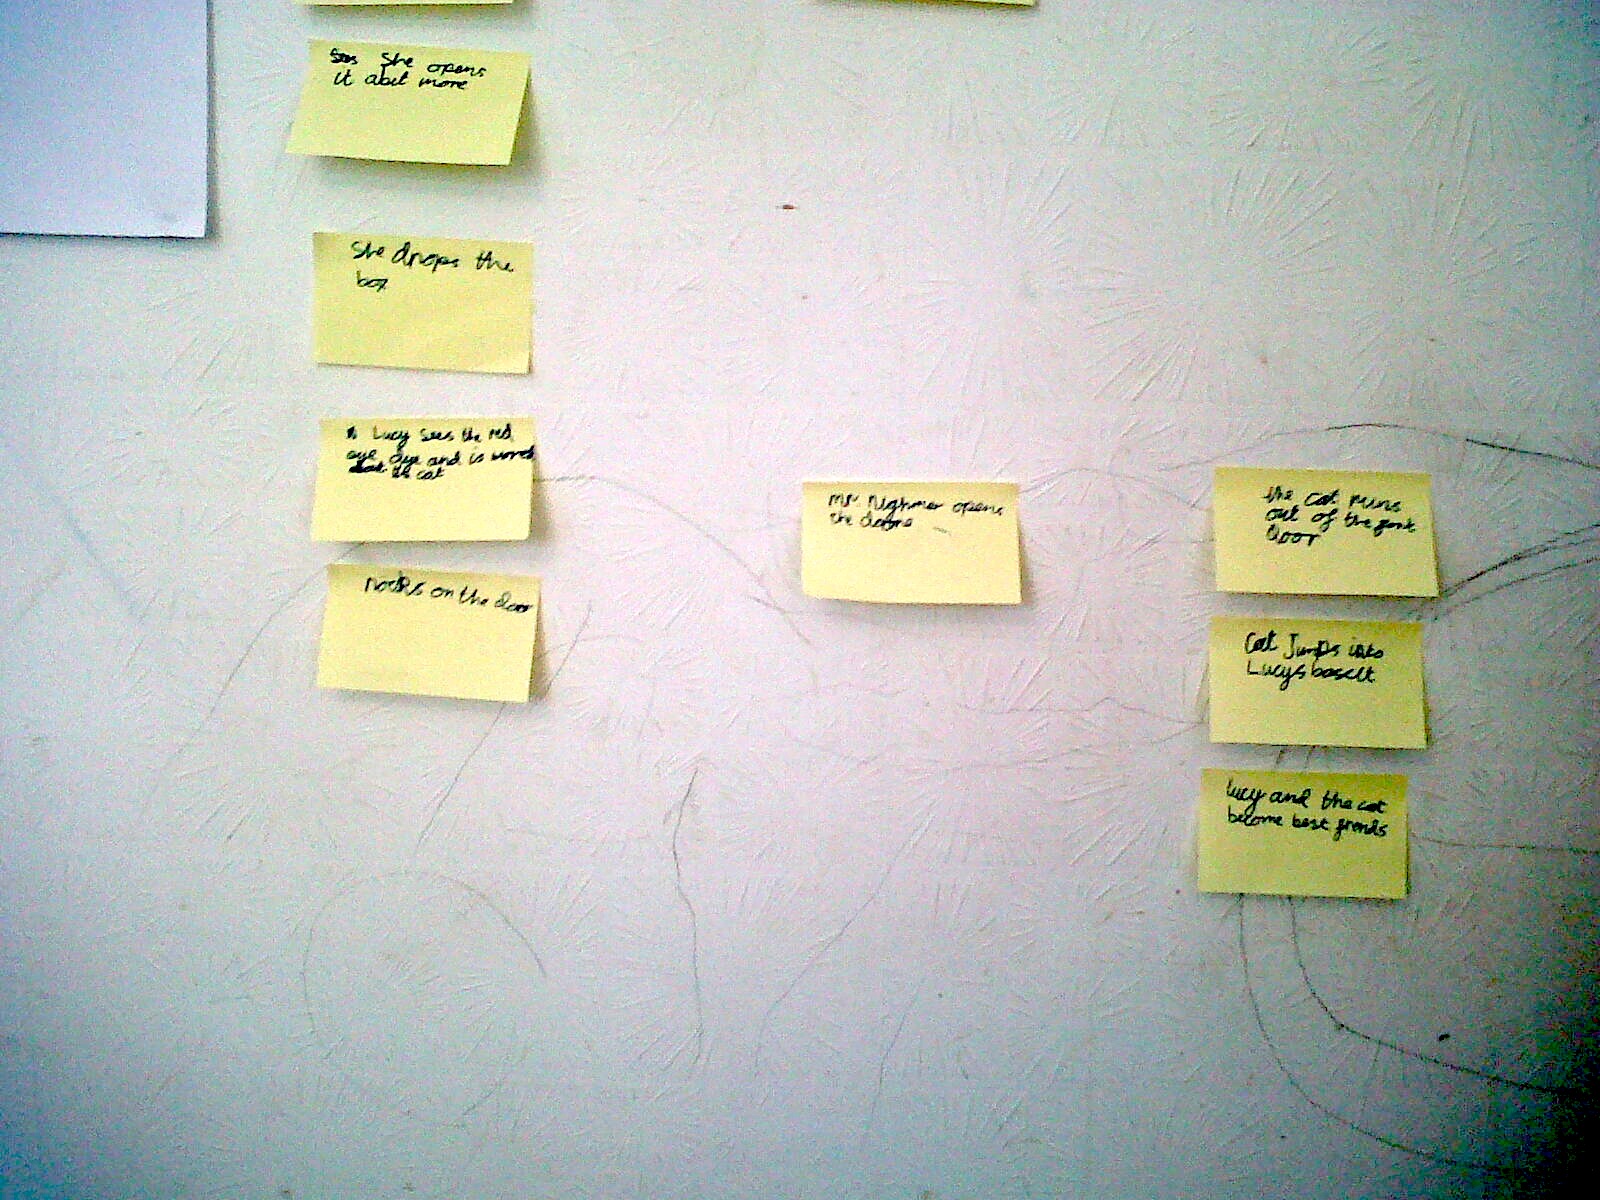 She opens
it abit more
She drops the
box
Lucy sees the red
eye and is
the cat
nocks on the door
Mr. Nighmer opens
the
the cat runs
out of the
door
Cat Jumps into
Lucys
Lucy and the cat
become best friends